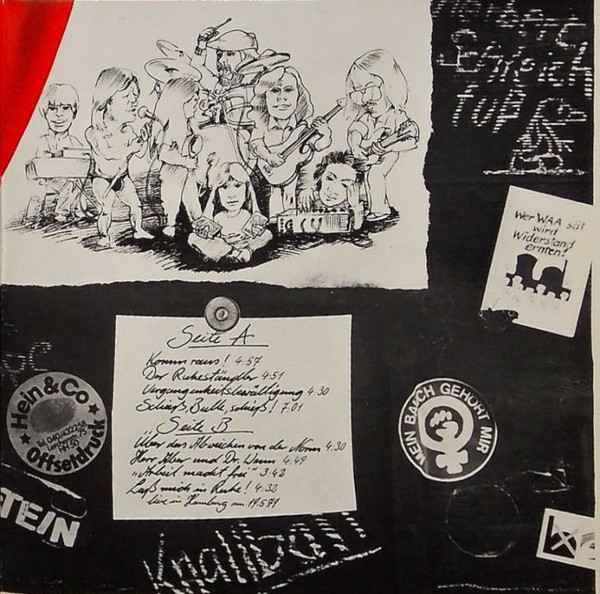 Wer WAA sät
wird
Widerstand
ernten!
Seite A
Komm raus! 4.57
Der Ruheständler 4.51
Vergangenheitsbewältigung 4.30
Schieß, Bulle, schieß! 7.01
Seite B
Über das Abweichen von der Norm 4.30
Herr Aber und Dr. Wenn 4.49
"Arbeit macht frei" 3.42
Laß mich in Ruhe! 4.32
live in Hamburg am 19.5.79
Hein & Co
Offsetdruck
MEIN BAUCH GEHÖRT MIR
TEIN